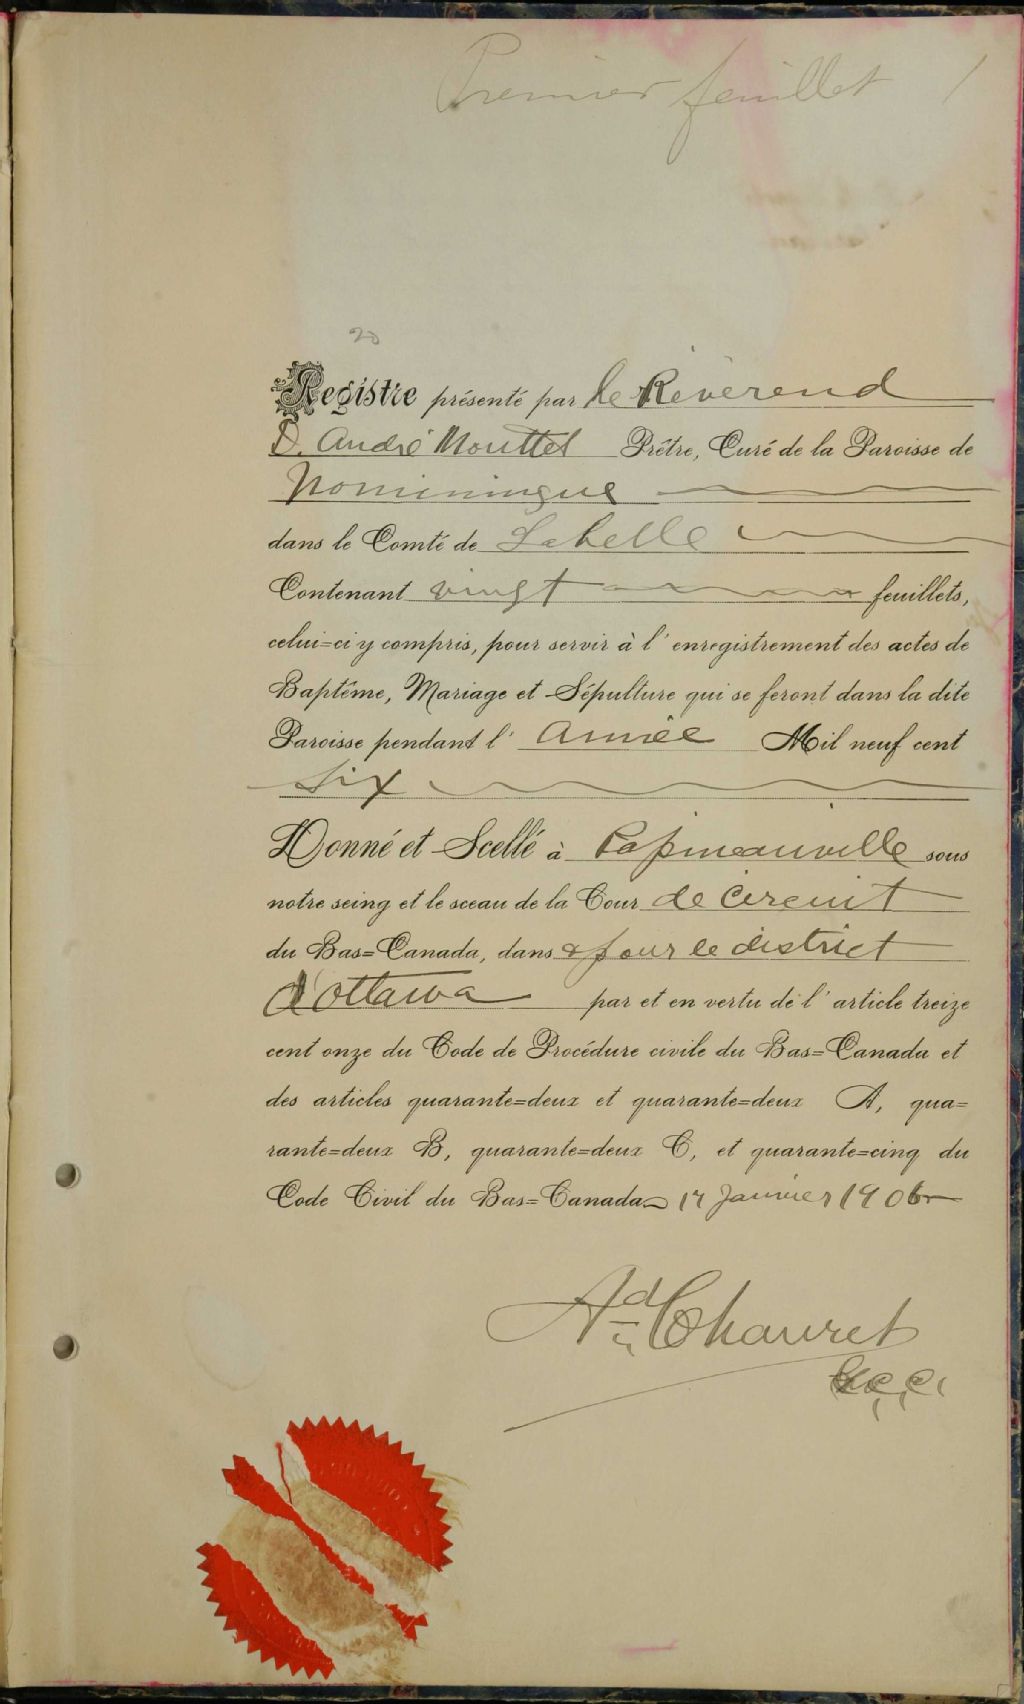 Premier feuillet 1
20
Registre présenté par le Révérend
D. André Mouttet Prêtre, Curé de la Paroisse de
Nominingue
dans le Comté de Labelle
Contenant vingt feuillets,
celui=ci y compris, pour servir à l'enregistrement des actes de
Baptême, Mariage et Sépulture qui se feront dans la dite
Paroisse pendant l'Année Mil neuf cent
Six
Donné et Scellé à Papineauville sous
notre seing et le sceau de la Cour de Circuit
du Bas=Canada, dans & pour le district
d'Ottawa par et en vertu de l'article treize
cent onze du Code de Procédure civile du Bas=Canada et
des articles quarante=deux et quarante=deux A, qua=
rante=deux B, quarante=deux C, et quarante=cinq du
Code Civil du Bas=Canada 17 Janvier 1906
Ad Chauret